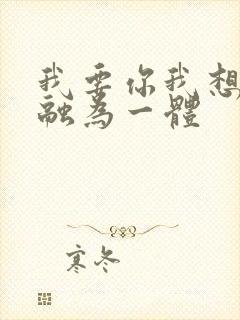 我要你我想
融為一體
寒冬